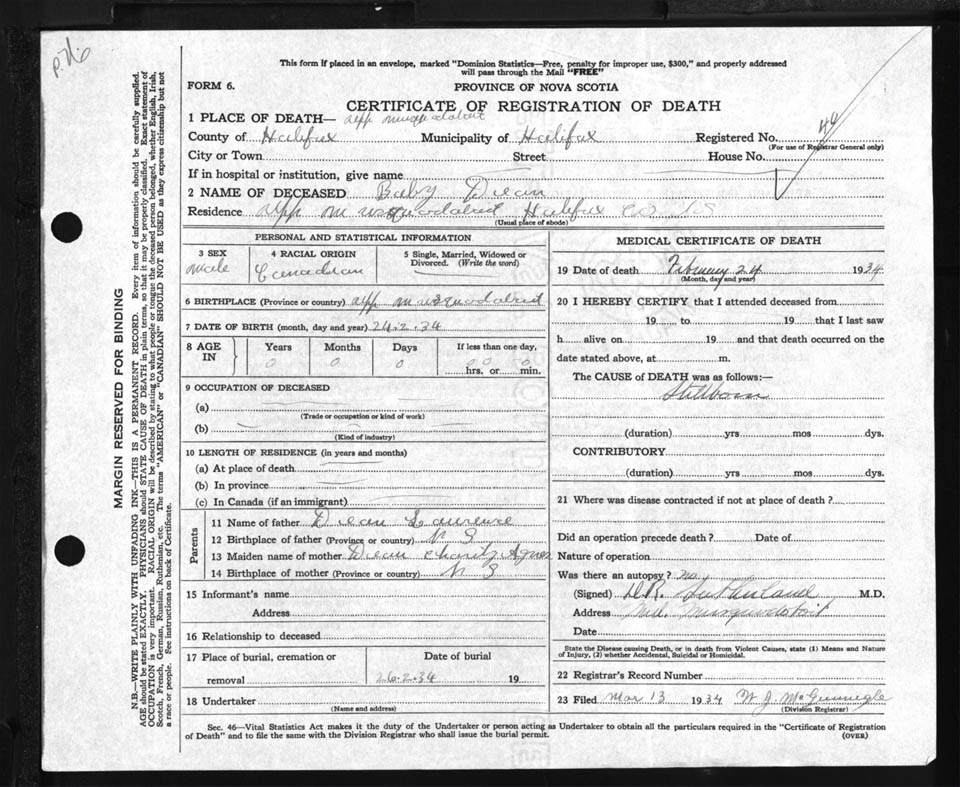 p.76
This form if placed in an envelope, marked "Dominion Statistics—Free, penalty for improper use, $300," and properly addressed
will pass through the Mail "FREE"
FORM 6.
PROVINCE OF NOVA SCOTIA
CERTIFICATE OF REGISTRATION OF DEATH
1 PLACE OF DEATH— upp musquodobit
County of Halifax Municipality of Halifax Registered No.
(For use of Registrar General only)
City or Town Street House No.
If in hospital or institution, give name
2 NAME OF DECEASED Baby Dean
Residence upp musquodobit Halifax co NS
(Usual place of abode)
PERSONAL AND STATISTICAL INFORMATION
3 SEX 4 RACIAL ORIGIN 5 Single, Married, Widowed or
Divorced. (Write the word)
Male Canadian
6 BIRTHPLACE (Province or country) upp musquodobit
7 DATE OF BIRTH (month, day and year) 24.2.34
8 AGE IN Years Months Days If less than one day,
0 0 0 00 0
hrs. or min.
9 OCCUPATION OF DECEASED
(a)
(Trade or occupation or kind of work)
(b)
(Kind of industry)
10 LENGTH OF RESIDENCE (in years and months)
(a) At place of death
(b) In province
(c) In Canada (if an immigrant)
Parents
11 Name of father Dean Laurence
12 Birthplace of father (Province or country) N S
13 Maiden name of mother Dean Charity Agnes
14 Birthplace of mother (Province or country) N S
15 Informant's name
Address
16 Relationship to deceased
17 Place of burial, cremation or Date of burial
removal 26.2.34 19
18 Undertaker
(Name and address)
MEDICAL CERTIFICATE OF DEATH
19 Date of death February 24 1934
(Month, day and year)
20 I HEREBY CERTIFY that I attended deceased from
19 to 19 that I last saw
h alive on 19 and that death occurred on the
date stated above, at m.
The CAUSE of DEATH was as follows:—
Stillborn
(duration) yrs mos dys.
CONTRIBUTORY
(duration) yrs mos dys.
21 Where was disease contracted if not at place of death?
Did an operation precede death? Date of
Nature of operation
Was there an autopsy? no
(Signed) D.R. Sutherland M.D.
Address Mid. Musquodoboit
Date
State the Disease causing Death, or in death from Violent Causes, state (1) Means and Nature
of Injury, (2) whether Accidental, Suicidal or Homicidal.
22 Registrar's Record Number
23 Filed Mar 13 1934 W J McGunnigle
(Division Registrar)
Sec. 46—Vital Statistics Act makes it the duty of the Undertaker or person acting as Undertaker to obtain all the particulars required in the "Certificate of Registration
of Death" and to file the same with the Division Registrar who shall issue the burial permit.
(OVER)
MARGIN RESERVED FOR BINDING
N.B.—WRITE PLAINLY WITH UNFADING INK—THIS IS A PERMANENT RECORD. Every item of information should be carefully supplied.
AGE should be stated EXACTLY. PHYSICIANS should STATE CAUSE OF DEATH in plain terms, so that it may be properly classified. Exact statement of
OCCUPATION is very important. RACIAL ORIGIN will be described by stating to what people or tongue the deceased person belonged, whether English, Irish,
Scotch, French, German, Russian, Ruthenian, etc. The terms "AMERICAN" or "CANADIAN" SHOULD NOT BE USED as they express citizenship but not
a race or people. See instructions on back of Certificate.